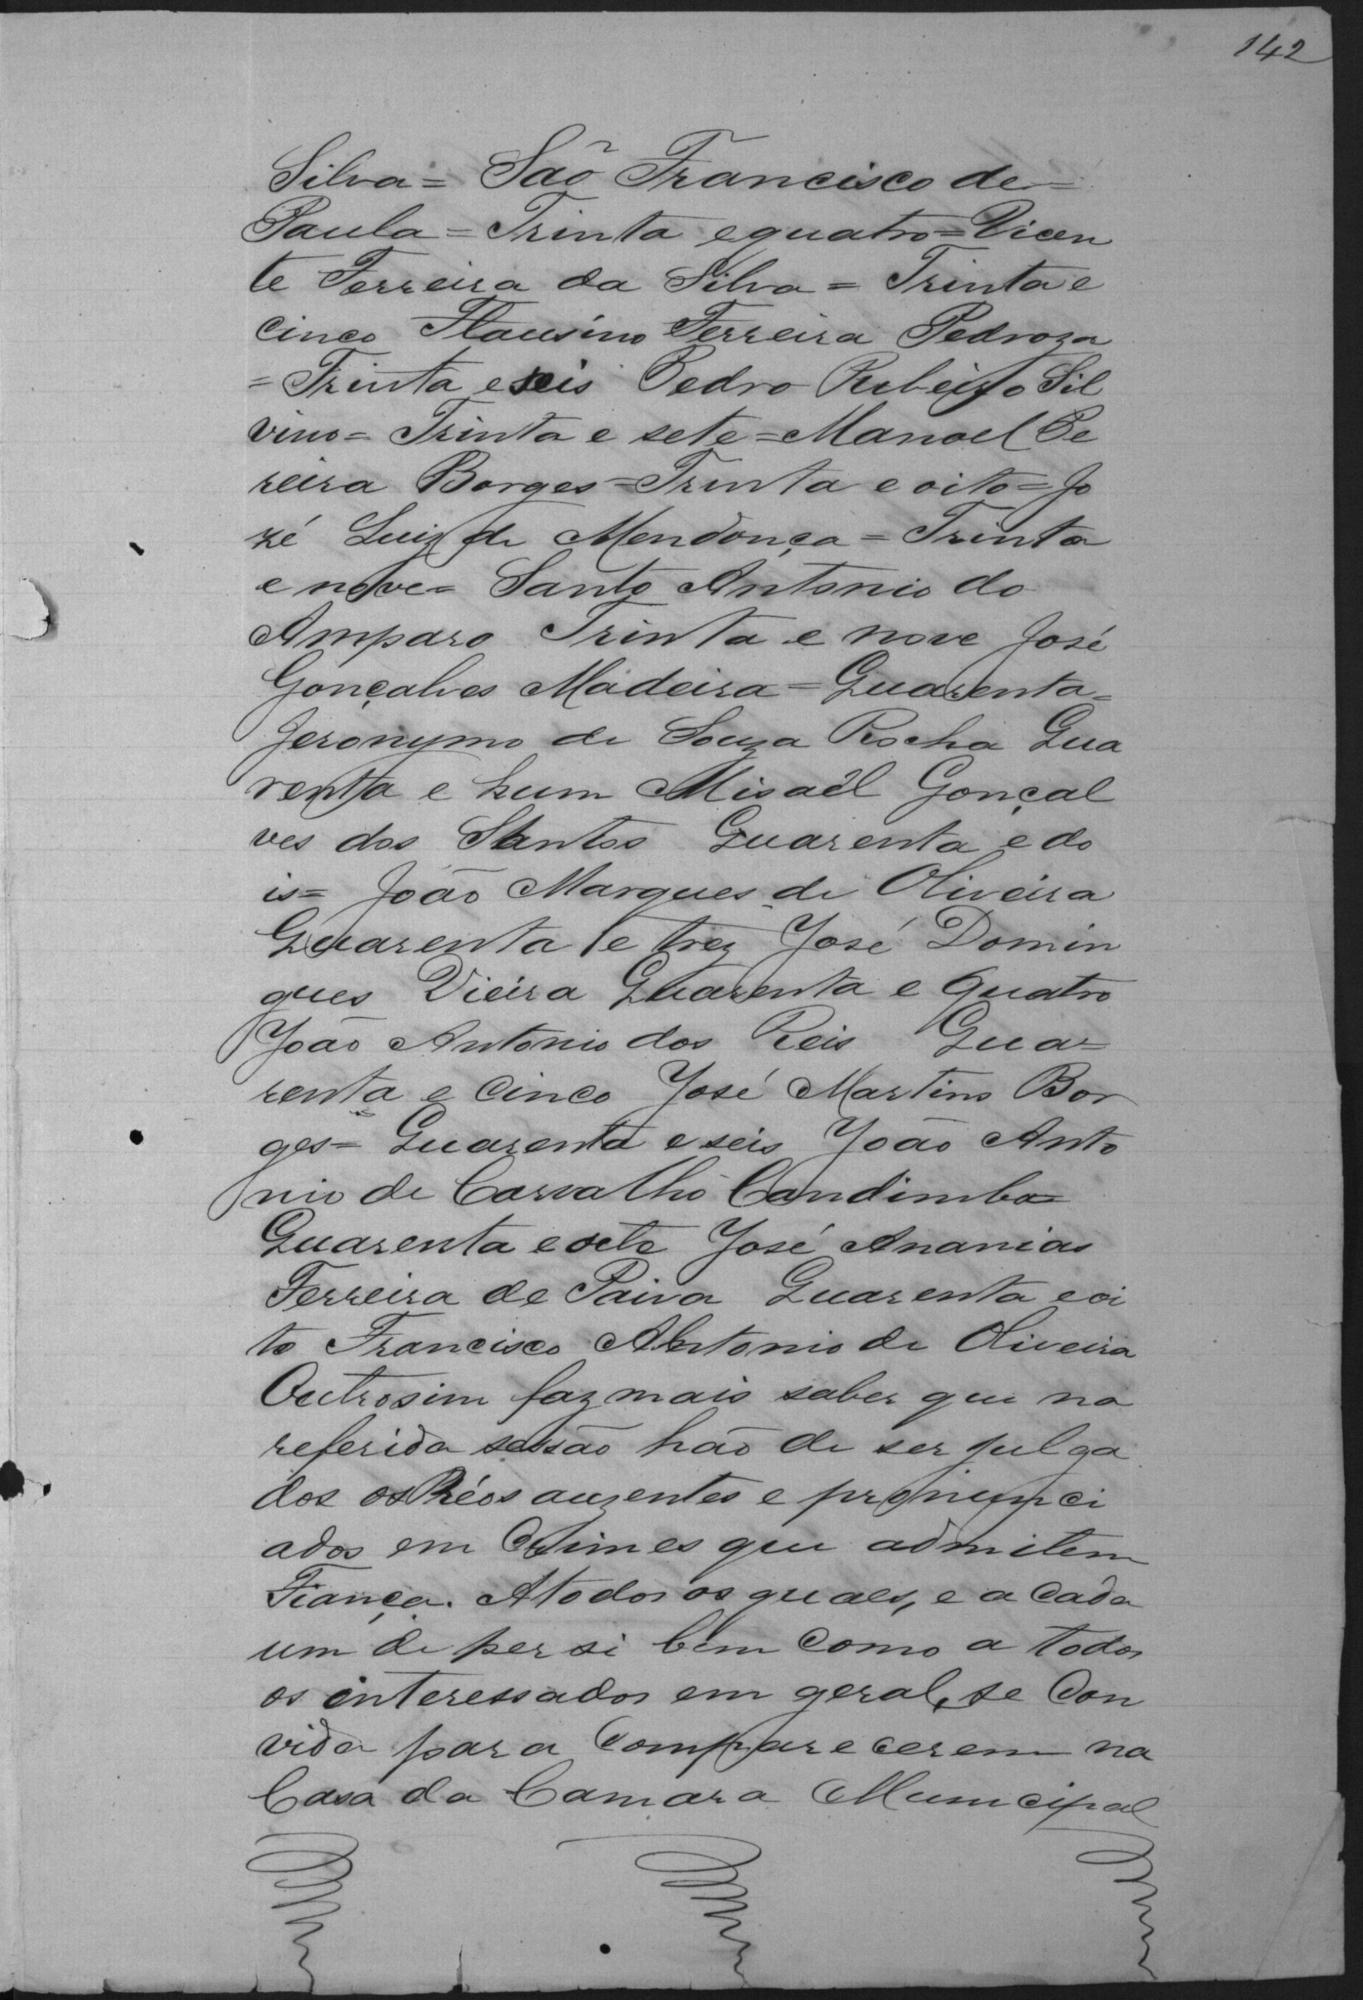 142
Silva = São Francisco de =
Paula = Trinta e quatro = Vicen
te Ferreira da Silva = Trinta e
cinco Flausino Ferreira Pedroza
= Trinta e seis Pedro Ribeiro Sil
vino = Trinta e sete = Manoel Pe
reira Borges = Trinta e oito = Jo
zé Luiz de Mendonça = Trinta
e nove = Santo Antonio do
Amparo Trinta e nove José
Gonçalves Madeira = Quarenta =
Jeronymo de Souza Rocha Qua
renta e hum Misaël Gonçal
ves dos Santos Quarenta e do
is = João Marques de Oliveira
Quarenta e trez José Domin
gues Vieira Quarenta e quatro
João Antonio dos Reis Qua=
renta e cinco José Martins Bor
ges = Quarenta e seis João Anto
nio de Carvalho Candimba =
Quarenta e sete José Ananias
Ferreira de Paiva Quarenta e oi
to Francisco Antonio de Oliveira
Outrosim faz mais saber que na
referida sessão hão de ser julga
dos os Réos auzentes e pronunci
ados em Crimes que admitem
Fiança. A todos os quaes, e a cada
um de per si bem como a todos
os interessados em geral, se Con
vida para Comparecerem na
Casa da Camara Municipal